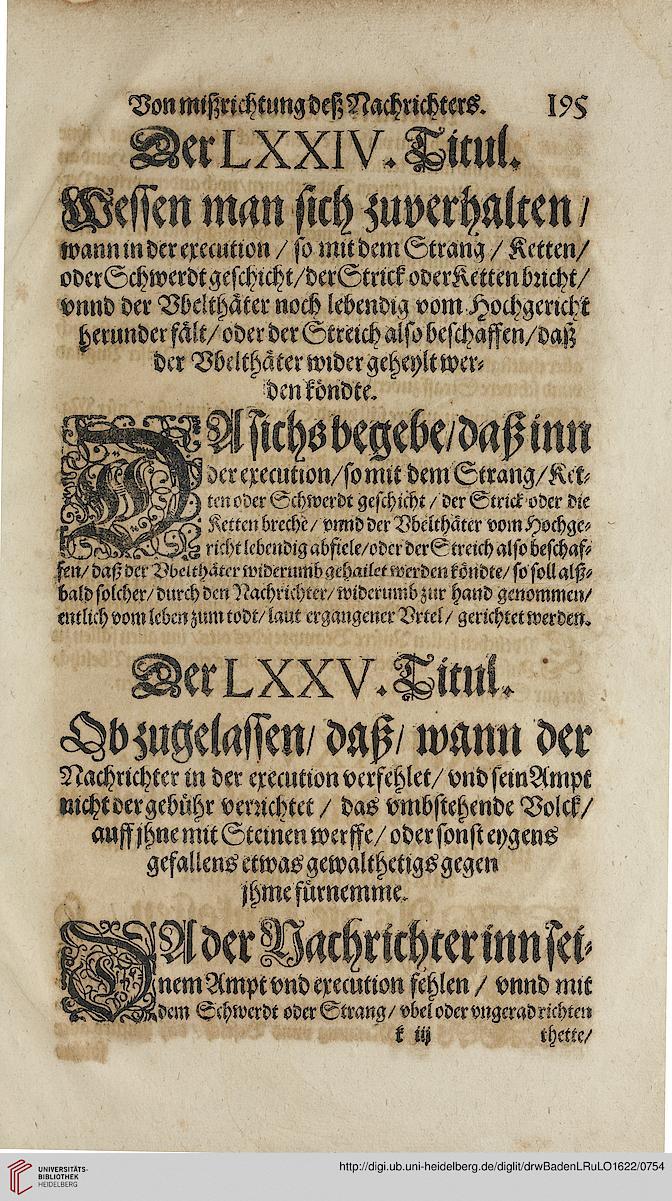 Von mißrichtung deß Nachrichters. 195
Der LXXIV. Titul.
Wessen man sich zuverhalten /
wann in der execution / so mit dem Strang / Ketten/
oder Schwerdt geschicht/der Strick oder Ketten bricht/
vnnd der Vbelthäter noch lebendig vom Hochgericht
herunder fält/ oder der Streich also beschaffen/daß
der Vbelthäter wider geheylt wer⸗
den köndte.
DA sichs begebe/daß inn
der execution/so mit dem Strang/Ket⸗
ten oder Schwerdt geschicht / der Strick oder die
Ketten breche/ vnnd der Vbelthäter vom Hochge⸗
richt lebendig abfiele/oder der Streich also beschaf⸗
fen/ daß der Vbelthäter widerumb gehailet werden köndte/ so soll alß⸗
bald solcher/ durch den Nachrichter/ widerumb zur hand genommen/
entlich vom leben zum todt/ laut ergangener Vrtel/ gerichtet werden.
Der LXXV. Titul.
Ob zugelassen/ daß/ wann der
Nachrichter in der execution verfehlet/ vnd sein Ampt
nicht der gebühr verrichtet / das vmbstehende Volck/
auff jhne mit Steinen werffe/ oder sonst eygens
gefallens etwas gewalthetigs gegen
jhme fürnemme.
DA der Nachrichter inn sei⸗
nem Ampt vnd execution fehlen / vnnd mit
dem Schwerdt oder Strang/ vbel oder vngerad richten
k iij thette/
UNIVERSITÄTS-
BIBLIOTHEK
HEIDELBERG
http://digi.ub.uni-heidelberg.de/diglit/drwBadenLRuLO1622/0754